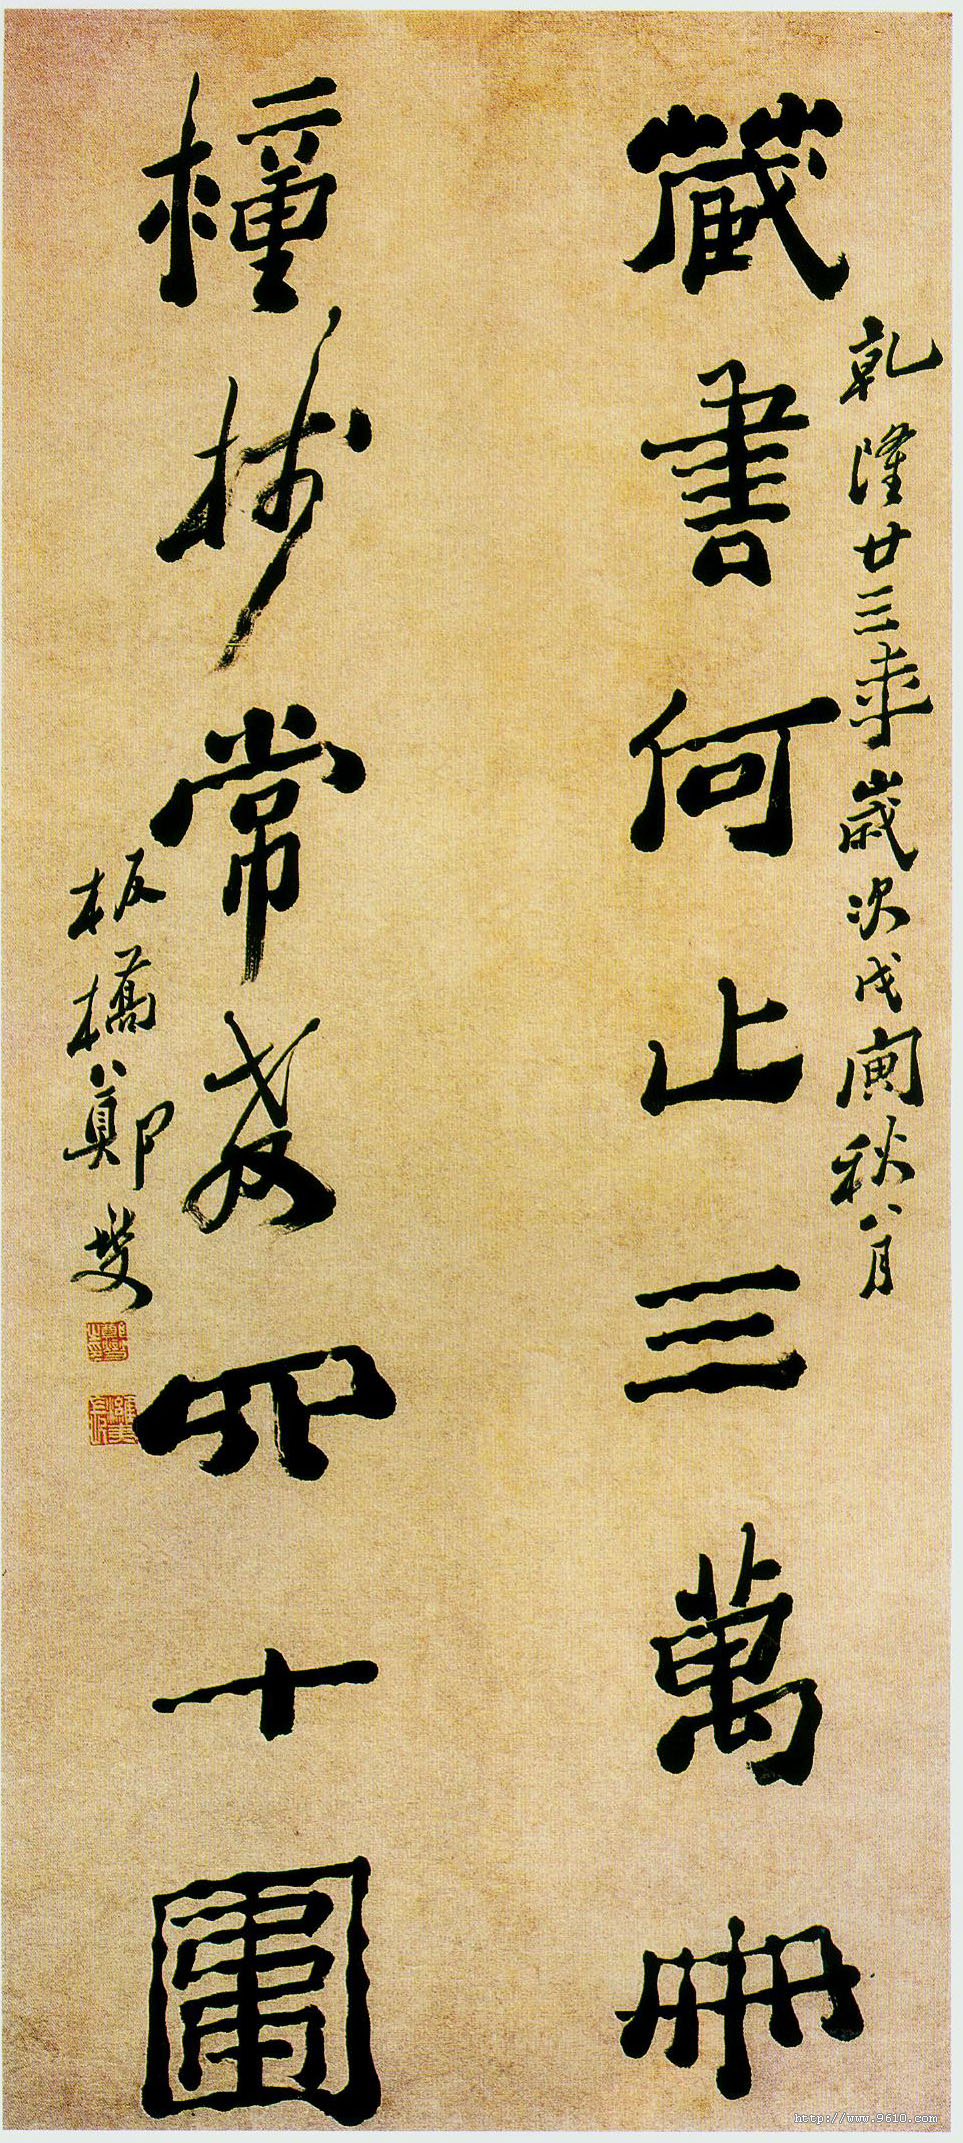 乾隆廿三年歲次戊寅秋八月
藏書何止三萬冊
種樹常教四十圍
板橋鄭燮
鄭燮之印
http://www.9610.com